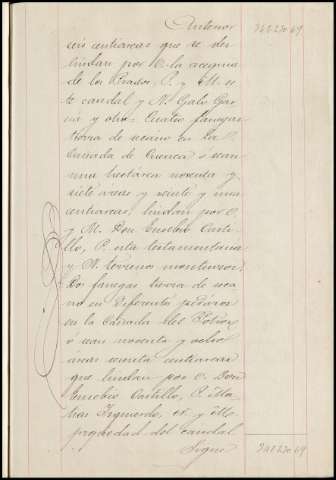 Anterior 348230 69
seis centiareas que se des
lindan por O. la acequia
de los Prados, P. y M. es
te caudal y N. Galo Gar
cia y otro: Cuatro fanegas
tierra de secano en la
Cañada de Cuenca ó sean
una hectárea noventa y
siete areas y veinte y una
centiareas; lindan por O.
y M. Don Eusebio Casti-
llo, P. esta testamentaria
y N. terrenos montuosos:
Dos fanegas tierra de seca
no en diferentes pedazos
en la Cañada del
ó sean noventa y ocho
áreas sesenta centiareas
que lindan por O. Don
Eusebio Castillo, P.
Izquierdo, N. y M.
propiedad del caudal
Sigue 348230 69